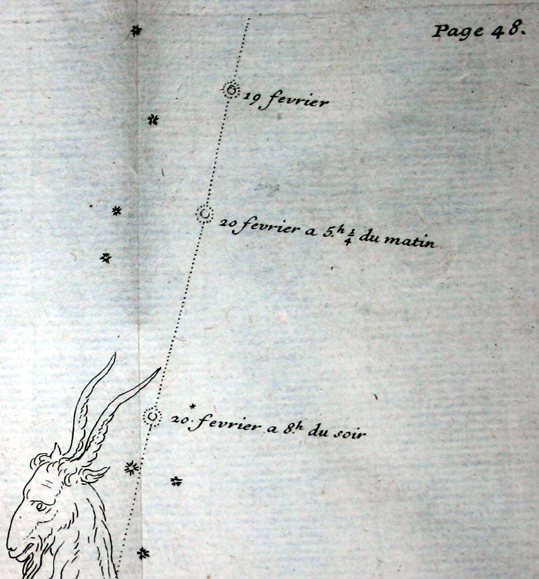 Page 48.
19 fevrier
20 fevrier a 5.h 1/4 du matin
20. fevrier a 8.h du soir